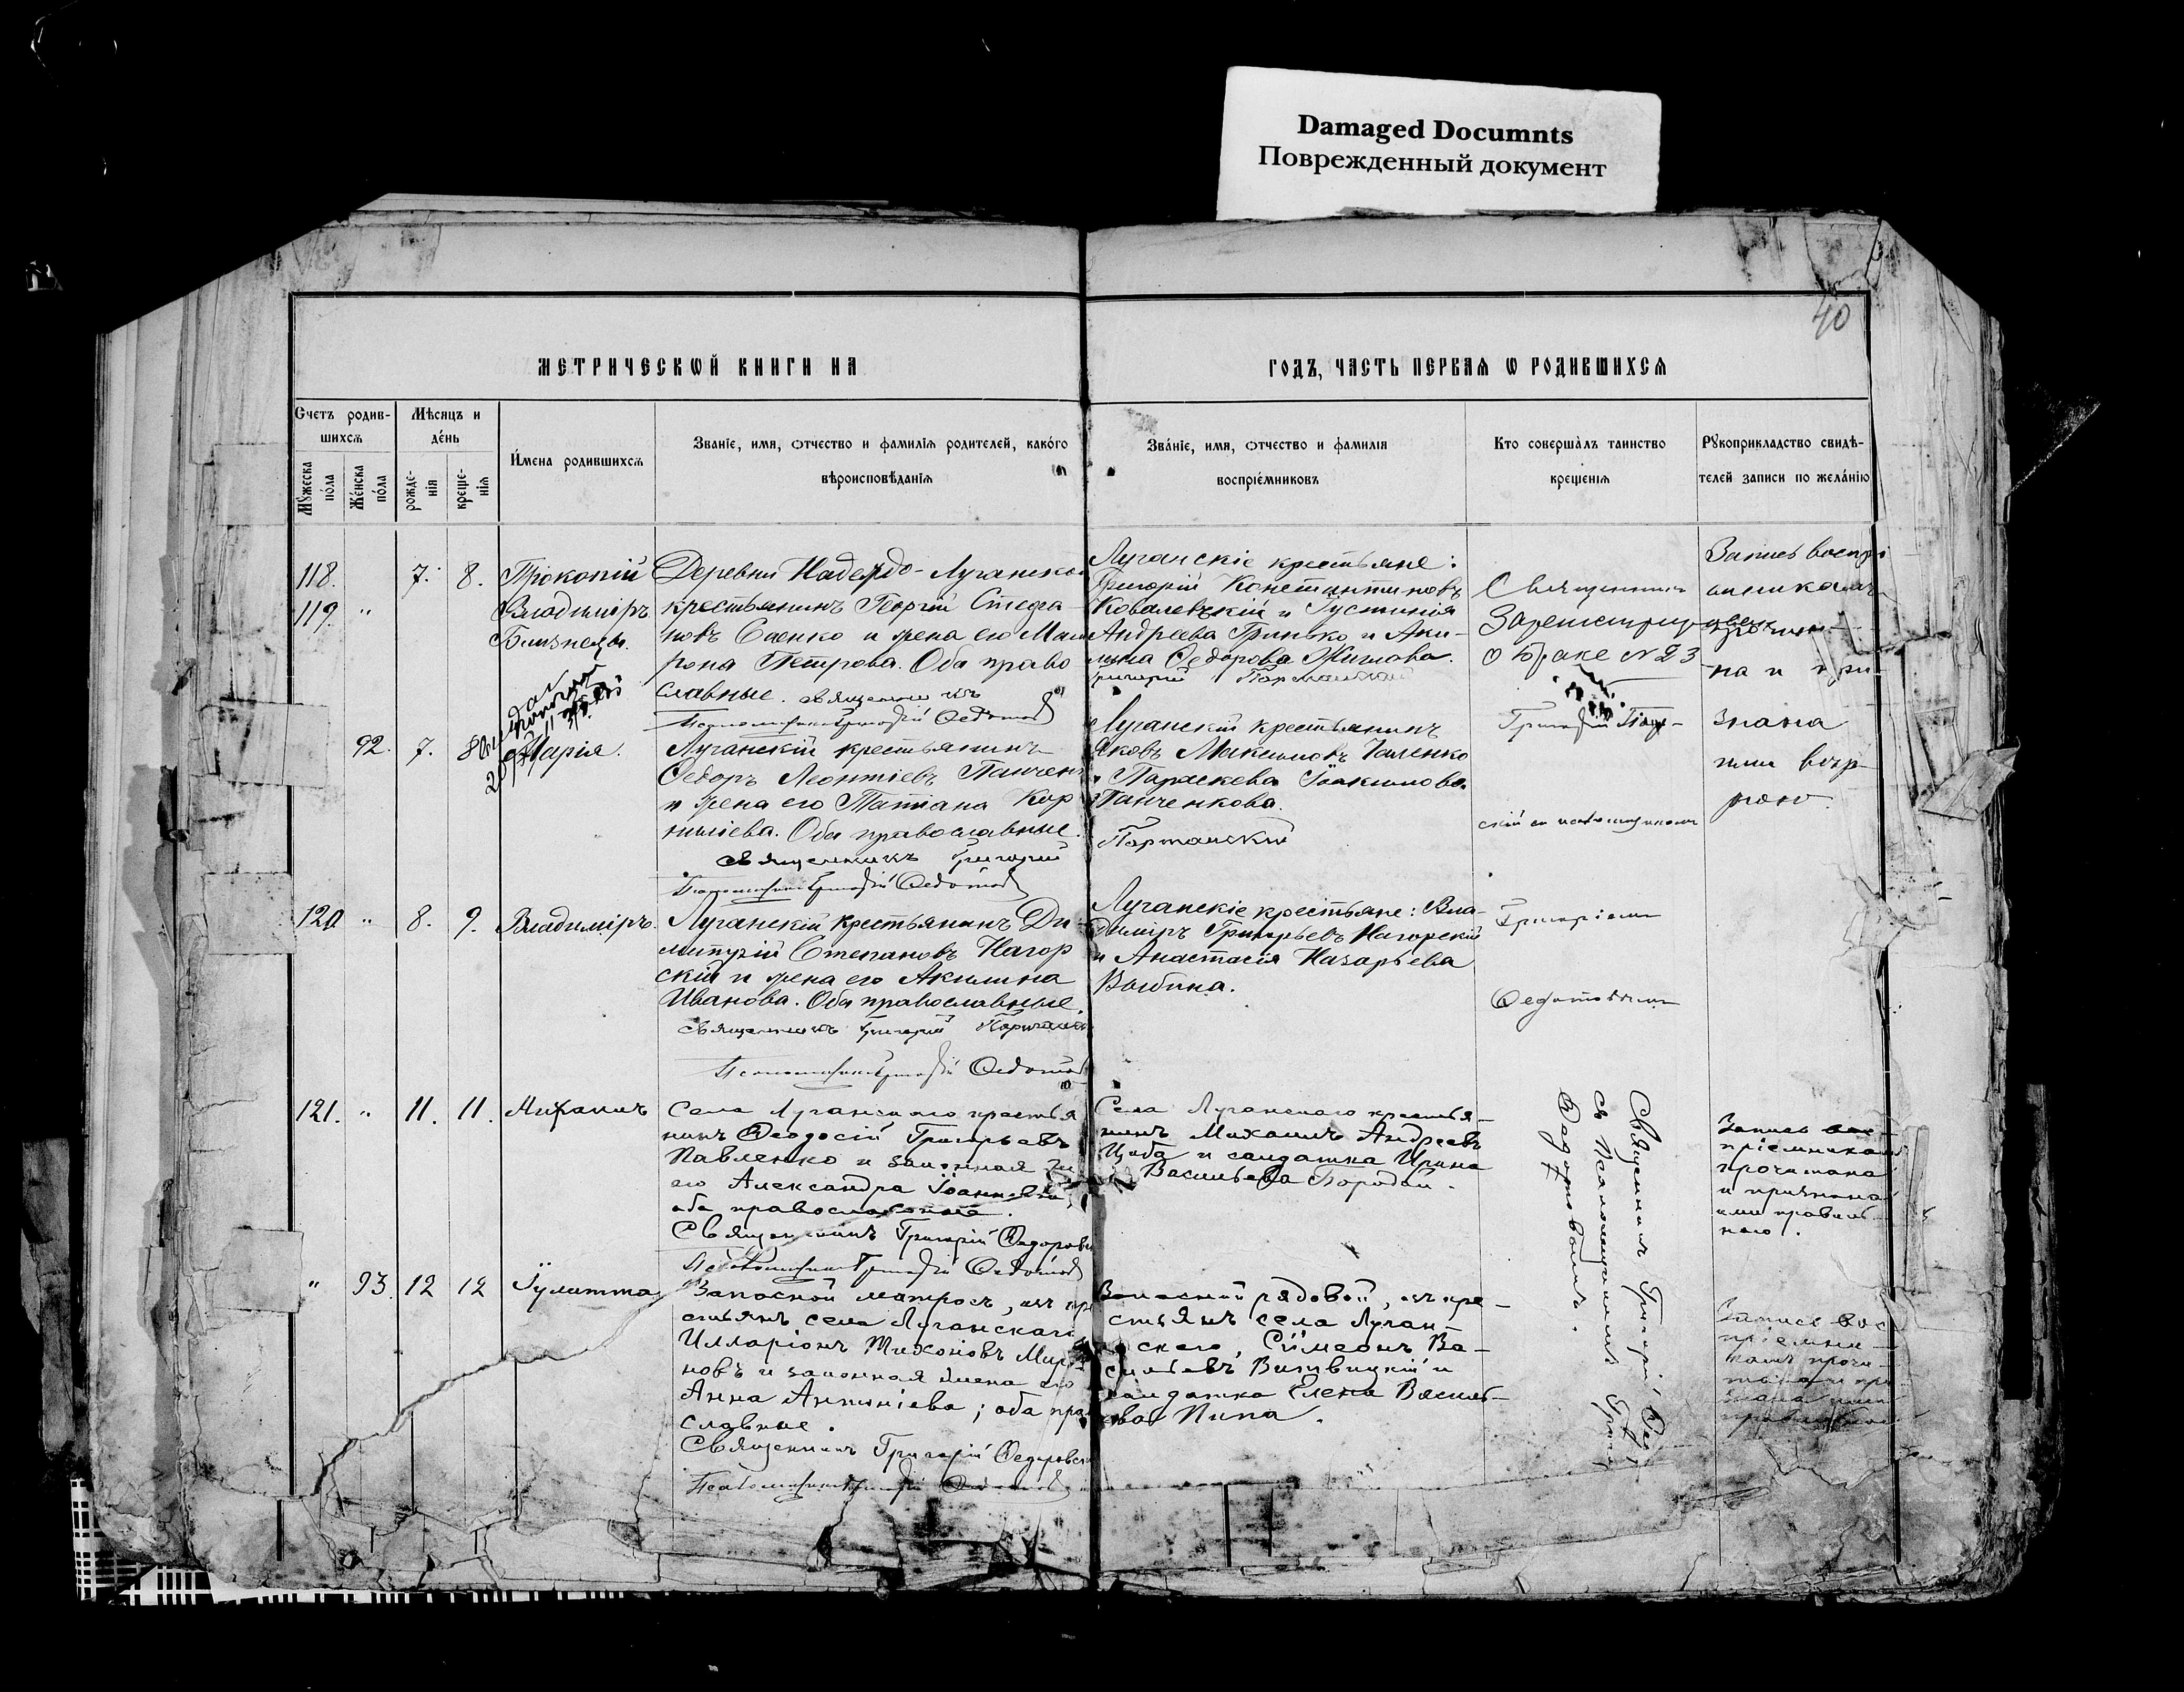 Damaged Documnts
Поврежденный документ
40
МЕТРИЧЕСКѠЙ КНИГИ НА
ГОДЪ, ЧАСТЬ ПЕРВАѦ Ѡ РОДИВШИХСѦ
Счетъ родив-
шихсѧ
Мꙋжеска
по́ла
Же́нска
по́ла
Мѣсяцъ и
де́нь
рожде-
нія
креще-
нїѧ
И́мена родившихсѧ
Званїе, имя, ѻтчество и фамилїѧ родителей, како́го
вѣроисповѣданїѧ
Зва́нїе, имя, ѻтчество и фамилїя
воспрїе́мниковъ
Кто соверша́лъ таинство
крещенїѧ
Рꙋкоприкладство свидѣ-
телей записи по жела́нїю
118. 7. 8. Прокопій
119. " Владиміръ
Близнецы.
Деревни Надеждо-Луганско
крестьянинъ Георгій Стефа-
новъ Саенко и жена его Мат
рона Петрова. Оба право
славные. священникъ
Псаломщикъ Григорій Ѳедотов
Луганскіе крестьяне:
Григорій Константиновъ
Ковалевскій и Іустинія
Андреева Гринько и Аки-
лина Ѳедорова Жилова.
Григорій
Священникъ
Зарегистрирован
о браке № 23
Запись воспрі
на и при-
знана
ими вѣр-
ною.
92. 7. 8 Марія.
Луганскій крестьянинъ
Ѳедоръ Леонтіевъ Панчен
и жена его Татіана Кор
ниліева. Оба православные.
священникъ Григорій
Псаломщикъ Григорій Ѳедотов
Луганскій крестьянинъ
Яковъ Максимовъ Галенко
и Параскева Іоакимова
Панченкова.
Григорій
скій съ псаломщикомъ
120. " 8. 9. Владиміръ.
Луганскій крестьянинъ Ди-
митрій Степановъ Нагор
скій и жена его Акилина
Иванова. Оба православные.
священникъ Григорій
Псаломщикъ Григорій Ѳедотов
Луганскіе крестьяне: Вла-
диміръ Григорьевъ Нагорскій
и Анастасія Назарьева
Григоріемъ
Ѳедотовымъ
121. " 11. 11.
Села Луганскаго крестья
нинъ Ѳеодосій Григорьевъ
Павленко и законная
его Александра Іоаннова,
оба православные.
Священникъ Григорій Ѳедоровс
Псаломщикъ Григорій Ѳедотов
Села Луганскаго крестья-
нинъ Михаилъ Андреевъ
Цаба и солдатка Ирина
Васильева Бородай.
Священникъ Григорій Ѳед
съ Псаломщикомъ Григ
Ѳедотовымъ.
Запись вос-
пріемникам
прочитана
и признана
ими правиль-
ною.
" 93. 12 12 Іулитта
Запасной матросъ, изъ кре
стьянъ села Луганскаго
Илларіонъ Тихоновъ Миро
новъ и законная жена его
Анна Антоніева; оба прав
славные.
Священникъ Григорій Ѳедоровск
Псаломщикъ Григорій Ѳедотов
Запасный рядовой, изъ кре-
стьянъ села Луган-
скаго, Сѵмеонъ Ва-
сильевъ и
солдатка Елена Василь-
ева Пипа.
Запись вос
пріемни-
камъ прочи-